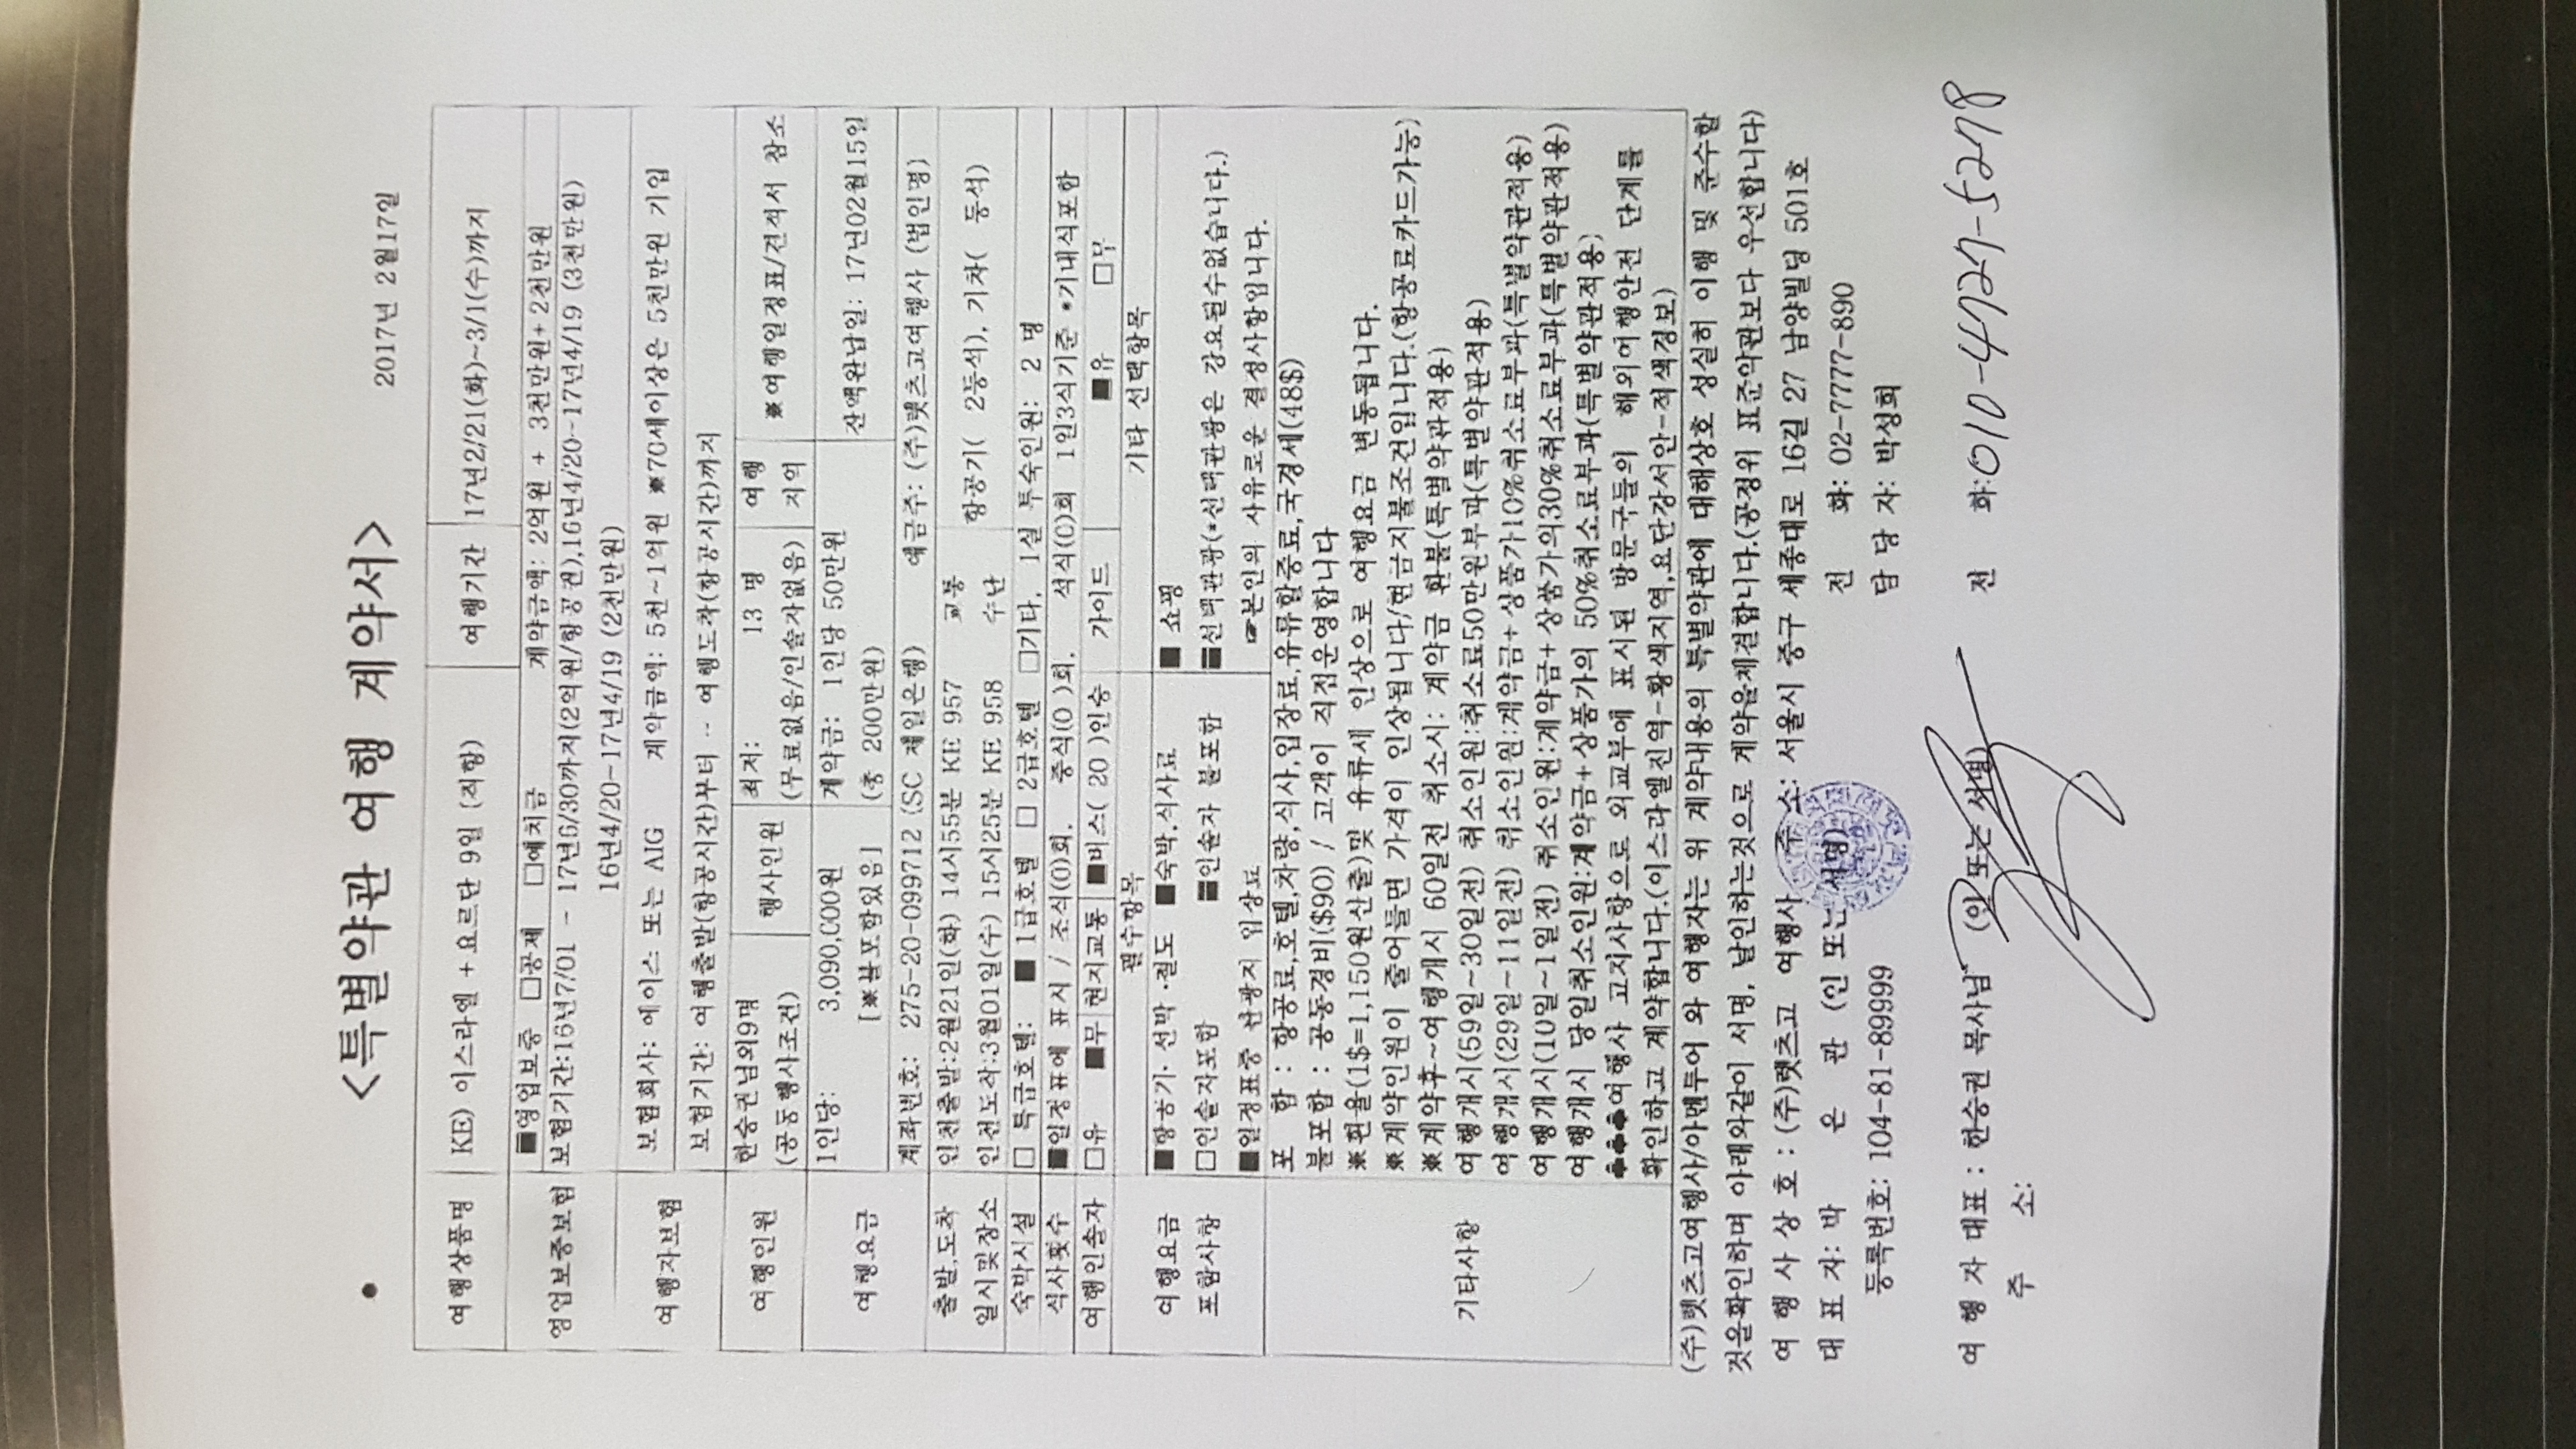 <특별약관 여행 계약서>
2017년 2월17일
여행상품명 KE) 이스라엘 +요르단 9일 (직항) 여행기간 17년2/21(화)~3/1(수)까지
영업보증보험 ■영업보증 □공제 □예치금 계약금액: 2억원 + 3천만원+ 2천만원
보험기간:16년7/01 - 17년6/30까지(2억원/항공권),16년4/20-17년4/19 (3천만원)
16년4/20-17년4/19 (2천만원)
여행자보험 보험회사: 에이스 또는 AIG 계약금액: 5천~1억원 ※70세이상은 5천만원 기입
보험기간: 여행출발(항공시간)부터 -- 여행도착(항공시간)까지
여행인원 한승권님외9명 행사인원 최저: 13 명 여행 ※여행일정표/견적서 참소
(공동행사조건) (무료없음/인솔자없음) 지역
여행요금 1인당: 3,090,000원 계약금: 1인당 50만원 잔액완납일: 17년02월15일
[※불포함있음] (총 200만원)
계좌번호: 275-20-099712 (SC 제일은행) 예금주: (주)렛츠고여행사 (법인명)
출발,도착 인천출발:2월21인(화) 14시55분 KE 957 교통 항공기( 2등석), 기차( 등석)
일시및장소 인천도착:3월01일(수) 15시25분 KE 958 수단
숙박시설 □ 특급호텔: ■ 1급호텔 □ 2급호텔 □기타, 1실 투숙인원: 2 명
식사횟수 ■일정표에 표시 / 조식(0)회, 중식(0 )회, 석식(0)회 1일3식기준 *기내식포함
여행인솔자 □유 ■무 현지교통 ■버스( 20 )인승 가이드 ■유 □무
필수항목 기타 선택항목
여행요금 ■항공기· 선박 ·철도 ■숙박,식사료 ■ 쇼핑
포함사항 □인솔자포함 ■인솔자 불포함 ■선택관광(*선택관광은 강요될수없습니다.)
■일정표중 관광지 입장료 ☞본인의 사유로운 결정사항입니다.
기타사항
포 함 : 항공료,호텔,차량,식사,입장료,유류할증료,국경세(48$)
불포함 : 공동경비($90) / 고객이 직접운영합니다
※환율(1$=1,150원산출)및 유류세 인상으로 여행요금 변동됩니다.
※계약인원이 줄어들면 가격이 인상됩니다/현금지불조건입니다.(항공료카드가능)
※계약후~여행개시 60일전 취소시: 계약금 환불(특별약관적용)
여행개시(59일~30일전) 취소인원:취소료50만원부과(특별약관적용)
여행개시(29일~11일전) 취소인원:계약금+ 상품가10%취소료부과(특별약관적용)
여행개시(10일~1일전) 취소인원:계약금+ 상품가의30%취소료부과(특별약관적용)
여행개시 당일취소인원:계약금+상품가의 50%취소료부과(특별약관적용)
♣♣♣여행사 고지사항으로 외교부에 표시된 방문국들의 해외여행안전 단계를
확인하고 계약합니다.(이스라엘전역-황색지역,요단강서안-적색경보)
(주)렛츠고여행사/아멘투어 와 여행자는 위 계약내용의 특별약관에 대해상호 성실히 이행 및 준수할
것을확인하며 아래와같이 서명, 날인하는것으로 계약을체결합니다.(공정위 표준약관보다 우선합니다)
여 행 사 상 호 : (주)렛츠고 여행사 주 소: 서울시 중구 세종대로 16길 27 남양빌딩 501호
대 표 자: 박 은 관 (인 또는 서명) 전 화: 02-7777-890
등록번호: 104-81-89999 담 당 자: 박성희
여 행 자 대표 : 한승권 목사님 (인 또는 서명) 전 화:010-4727-5278
주 소: